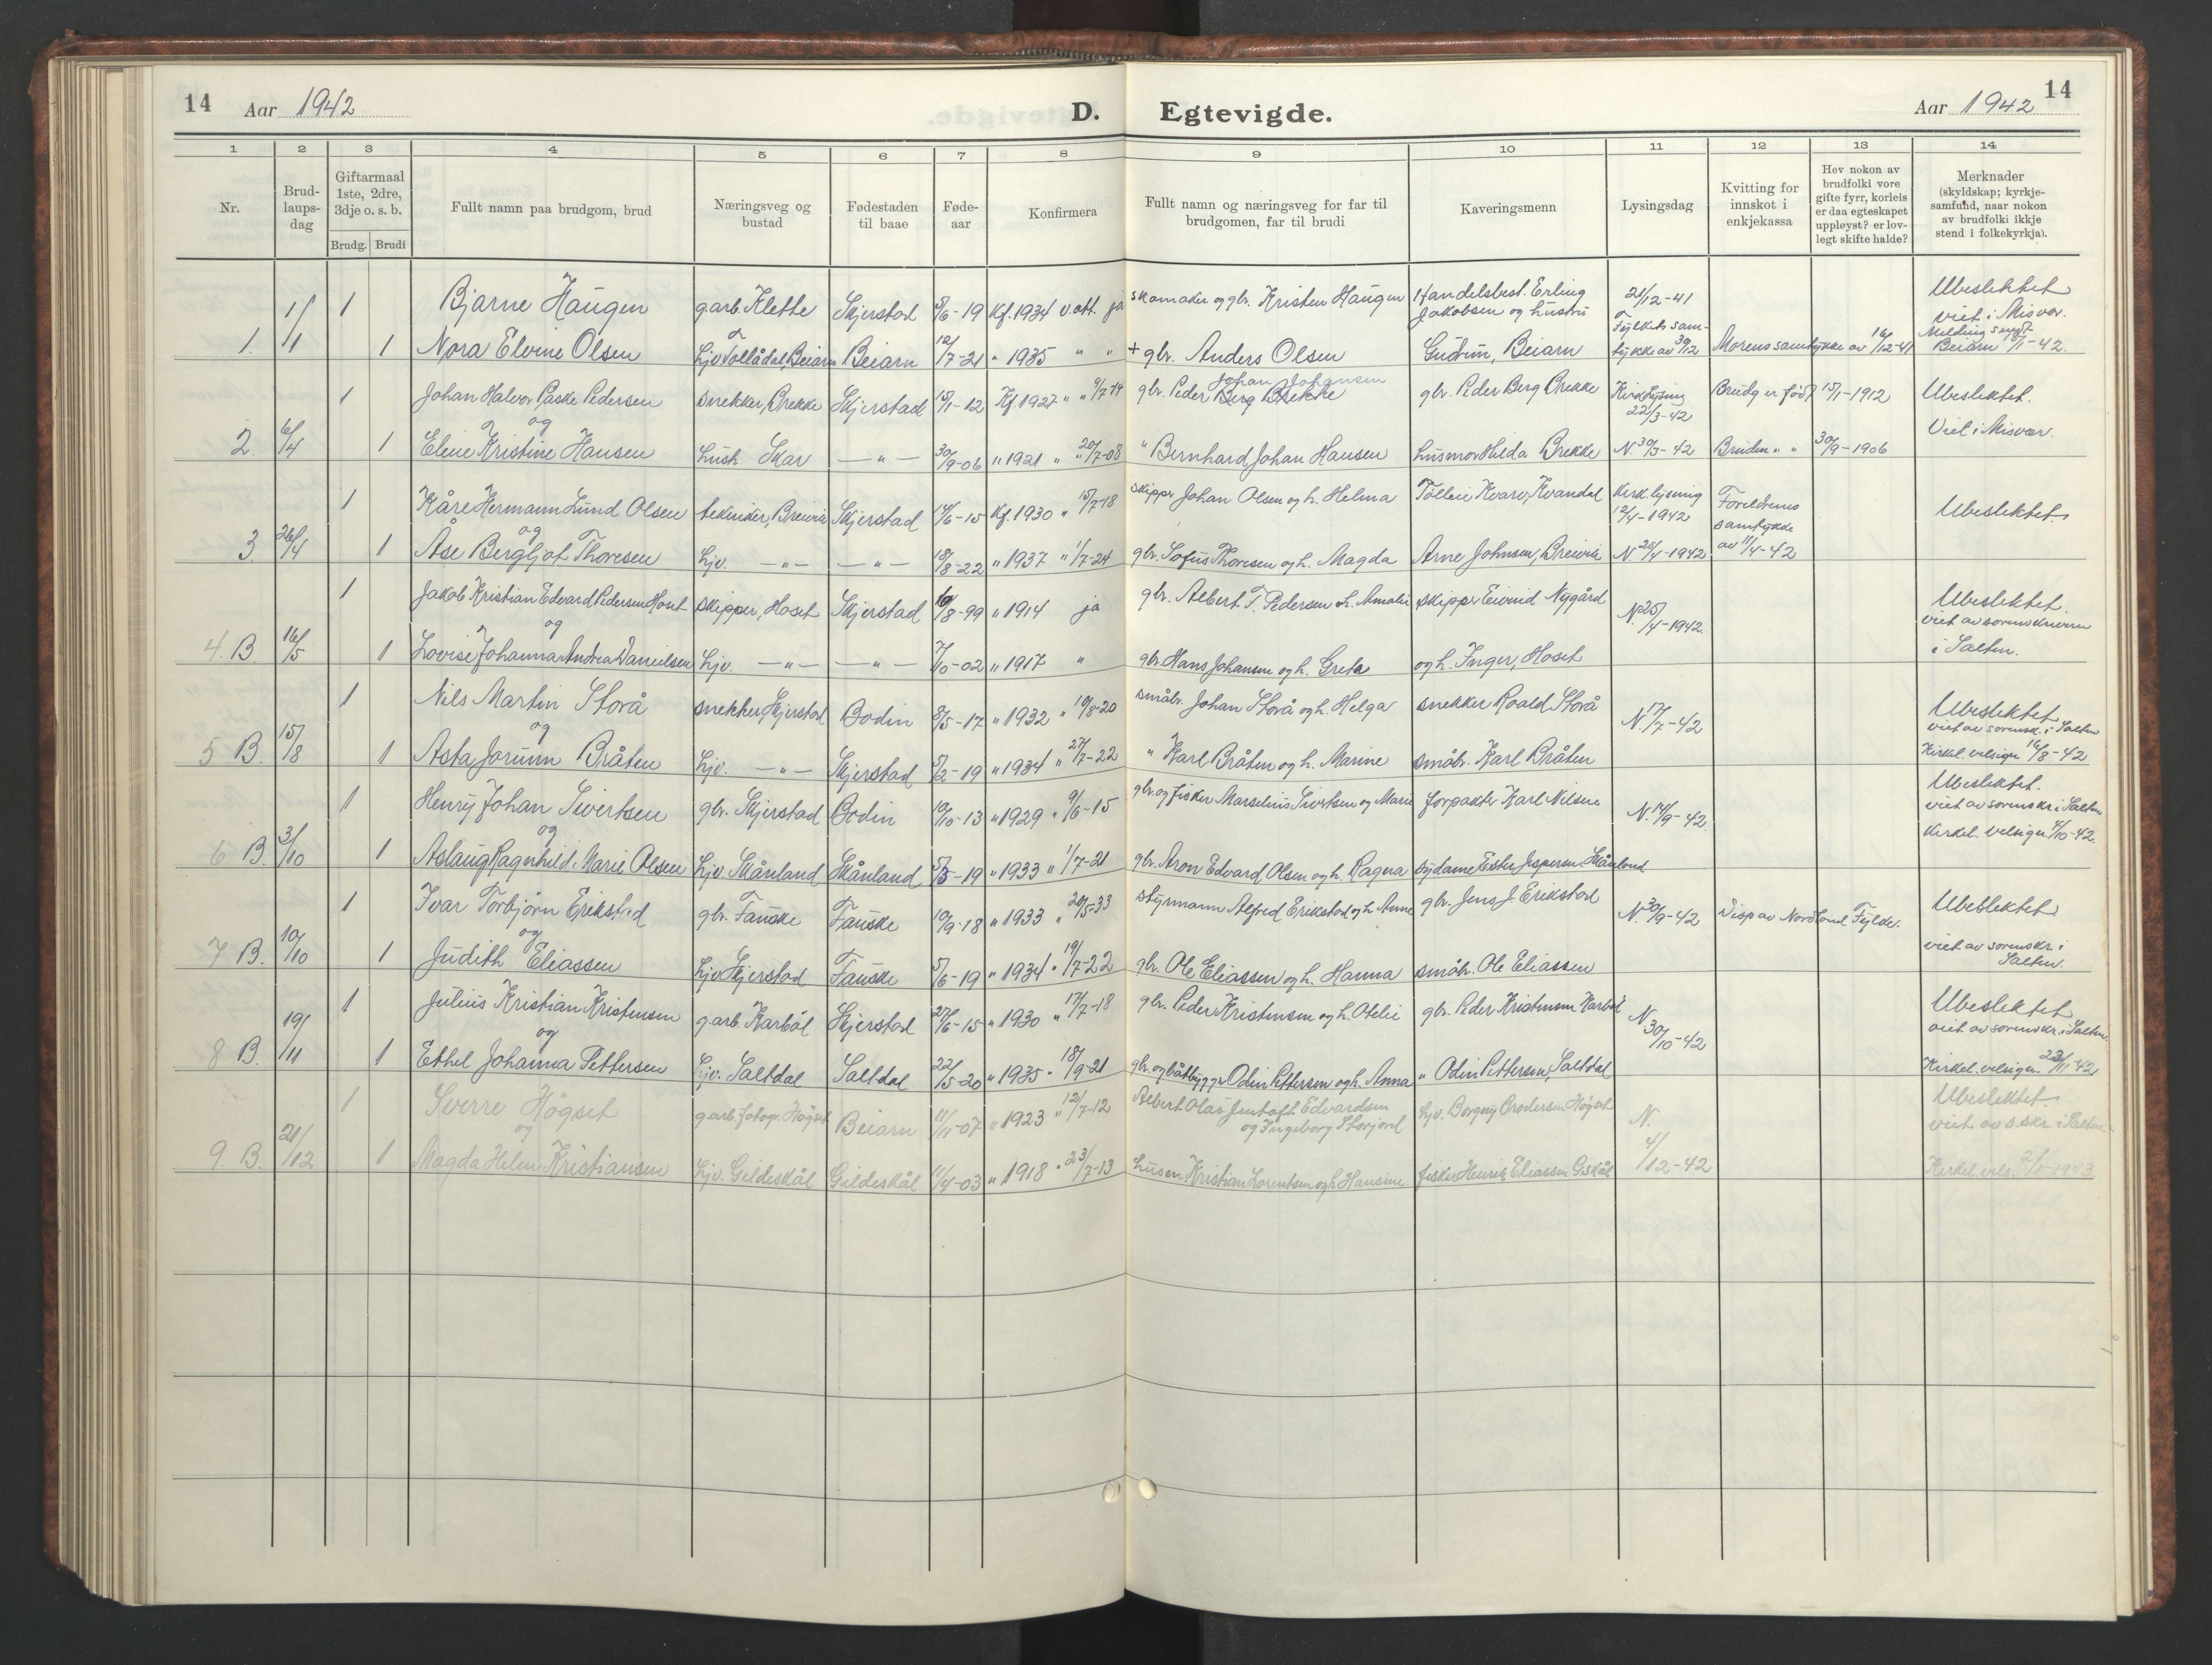 14 Aar 1942 D. Egtevigde. Aar 1942 14
1 2 3 4 5 6 7 8 9 10 11 12 13 14
Nr.
Brud-
laups-
dag
Giftarmaal
1ste, 2dre,
3dje o. s. b.
Brudg. Brudi
Fullt namn paa brudgom, brud
Næringsveg og
bustad
Fødestaden
til baae
Føde-
aar
Konfirmera
Fullt namn og næringsveg for far til
brudgomen, far til brudi
Kaveringsmenn
Lysingsdag
Kvitting for
innskot i
enkjekassa
Hev nokon av
brudfolki vore
gifte fyrr, korleis
er daa egteskapet
uppløyst? er lov-
legt skifte halde?
Merknader
(skyldskap; kyrkje-
samfund, naar nokon
av brudfolki ikkje
stend i folkekyrkja).
1 Bjarne Haugen garb. Klette Skjerstad 5/6-19 Kf. 1934 v. att. ja skomaker og gbr. Kristen Haugen Handelsbest. Erling Jakobsen og hustru 21/12-41 Ubeslektet viet i Misvær.
1. 1/1 1 Nora Elvine Olsen Hjv. Tollådal, Beiarn Beiarn 12/7-21 " 1935 " " + gbr. Anders Olsen Gudrun, Beiarn Fylkets sam-
tykke av 30/12 Morens samtykke av 16/12-41 Melding sendt
Beiarn 8/1-42.
1 Johan Halvor Påske Pedersen snekker, Brekke Skjerstad 15/1-12 Kf. 1927 " " 9/7-14 gbr. Peder Berg Brekke Johan Johansen gbr. Peder Berg Brekke Kirk. lysing
22/3-42 Brudg. er född 15/1-1912 Ubeslektet.
og
2. 6/4 1 Eline Kristine Hansen hush. Skar — " — 30/9-06 " 1921 " " 20/7-08 " Bernhard Johan Hansen husmor Hilda Brekke N. 30/3-42 Bruden " " 30/9-1906 Viet i Misvær.
1 Kåre Hermann Lund Olsen tekniker, Breivik Skjerstad 14/6-15 Kf. 1930 " 15/7-18 skipper Johan Olsen og h. Helma Tölleiv Kvarv, Kvandal Kirk. lysing
12/4-1942 Foreldrenes
samtykke
av 11/4-42 Ubeslektet.
og
3. 26/4 1 Åse Bergljot Thoresen Hjv. — " — — " — 18/8-22 " 1937 " 1/7-24 gbr. Sofus Thoresen og h. Magda Arne Johnsen, Breivik N. 25/4-1942
1 Jakob Kristian Edvard Pedersen Hoset skipper, Hoset Skjerstad 10/8-99 " 1914 ja gbr. Aelbert T. Pedersen o. h. Amalie skipper Eivind Nygård N. 25/4-1942. Ubeslektet.
viet av sorenskriveren
i Salten.
og
4. B. 16/5 1 Lovise Johanna Andrea Danielsen Hjv. — " — — " — 7/10-02 " 1917 " gbr. Hans Johansen og h. Greta og h. Inger, Hoset
1 Nils Martin Storå snekker, Skjerstad Bodin 8/5-17 " 1932 " 10/8-20 småbr. Johan Storå og h. Helga snekker Roald Storå N. 17/7-42 Ubeslektet
viet av sorensk. i Salten
og
5 B. 15/8 1 Asta Jorunn Bråten Hjv. — " — Skjerstad 5/2-19 " 1934 " 27/7-22 " Karl Bråten og h. Marine småbr. Karl Bråten Kirkel. velsign. 16/8-42
1 Henry Johan Sivertsen gbr. Skjerstad Bodin 10/10-13 " 1929 " 9/6-15 gbr. og fisker Marselius Sivertsen og Marie forpakter Karl Nilsen N. 14/9-42 Ubeslektet.
viet av sorenskr. i Salten
og
6 B. 3/10 1 Aslaug Ragnhild Marie Olsen Hjv. Skånland Skånland 5/5-19 " 1933 " 1/7-21 gbr. Aron Edvard Olsen og h. Ragna sydame Ester Jespersen Skånland Kirkel. velsign. 4/10-42.
1 Ivar Torbjörn Erikstad gbr. Fauske Fauske 10/9-18 " 1933 " 20/5-33 styrmann Alfred Erikstad og h. Anne gbr. Jens J. Erikstad N. 30/9-42 Disp av Nordland Fylke. Ubeslektet
og
7 B. 10/10 1 Judith Eliassen Hjv. Skjerstad Fauske 5/6-19 " 1934 " 19/7-22 gbr. Ole Eliassen og h. Hanna småbr. Ole Eliassen viet av sorenskr. i
Salten.
1 Julius Kristian Kristensen garb. Karböl Skjerstad 27/6-15 " 1930 " 17/7-18 gbr. Peder Kristensen og h. Otelie gbr. Peder Kristensen Karböl N. 30/10-42 Ubeslektet
viet av sorenskr. i Salten
og
8 B. 19/11 1 Ethel Johanna Pettersen Hjv. Saltdal Saltdal 22/5-20 " 1935 " 18/9-21 gbr. og båtbygger Odin Pettersen og h. Anna " Odin Pettersen, Saltdal Kirkel. velsign. 23/11-42
1 Sverre Högset garb. fotogr. Högset Beiarn 11/11-07 " 1923 " 12/7-12 Aelbert Olas Jentoft Edvardsen
og Ingeborg Storjord Hjv. Borgny Brodersen Högset N. 4/12-42 Ubeslektet.
viet av s.skr. i Salten
og
9. B. 21/12 1 Magda Helene Kristiansen Hjv. Gildeskål Gildeskål 11/4-03 " 1918 " 23/7-13 husm. Kristian Lorentsen og h. Hansine fisker Henrik Eliassen G.skål Kirkel. vels. 2/1-1943